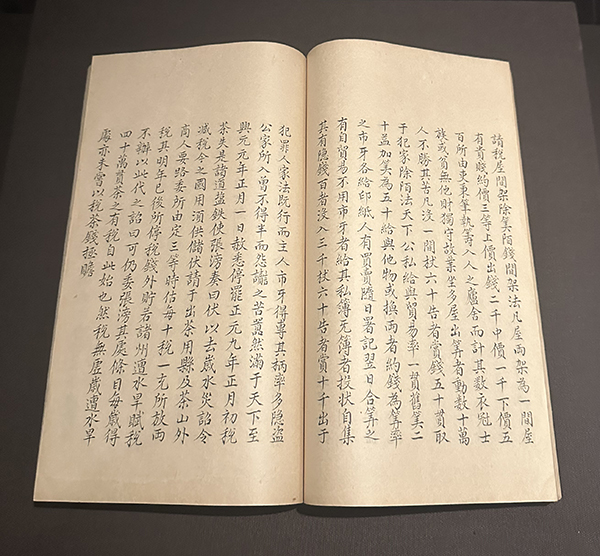 請稅屋間架除筭陌錢間架法凡屋兩架為一間屋
有貴賤約價三等上價出錢二千中價一千下價五
百所由吏秉筆執籌入人之廬舍而計其數衣冠士
族或貧無他財獨守故業坐多屋出筭者動數十萬
人不勝其苦凡沒一間杖六十告者賞錢五十貫取
于犯家除陌法天下公私給與貿易率一貫舊筭二
十益加筭為五十給與他物或換兩者約錢為筭率
之市牙各給印紙人有買賣隨日署記翌日合筭之
有自貿易不用市牙者給其私簿无簿者投狀自集
其有隱錢百者沒入三千杖六十告者賞十千出于
犯罪人家法既行而主人市牙得專其柄率多隱盜
公家所入曾不得半而怨讟之苦囂然滿于天下至
興元元年正月一赦悉停罷正元九年正月初稅
茶失是諸道鹽鉄使張滂奏曰伏以去歲水災詔令
減稅今之國用須供儲伏請于出茶用縣及茶山外
商人要路委所由定三等時估每十稅一充所放兩
稅其明年已後所停稅錢外貯若諸州遭水旱賦稅
不辦以此代之詔曰可仍委張滂具處條目每歲得
四十萬貫茶之有稅自此始也然稅無虛歲遭水旱
處亦未嘗以稅茶錢拯贍